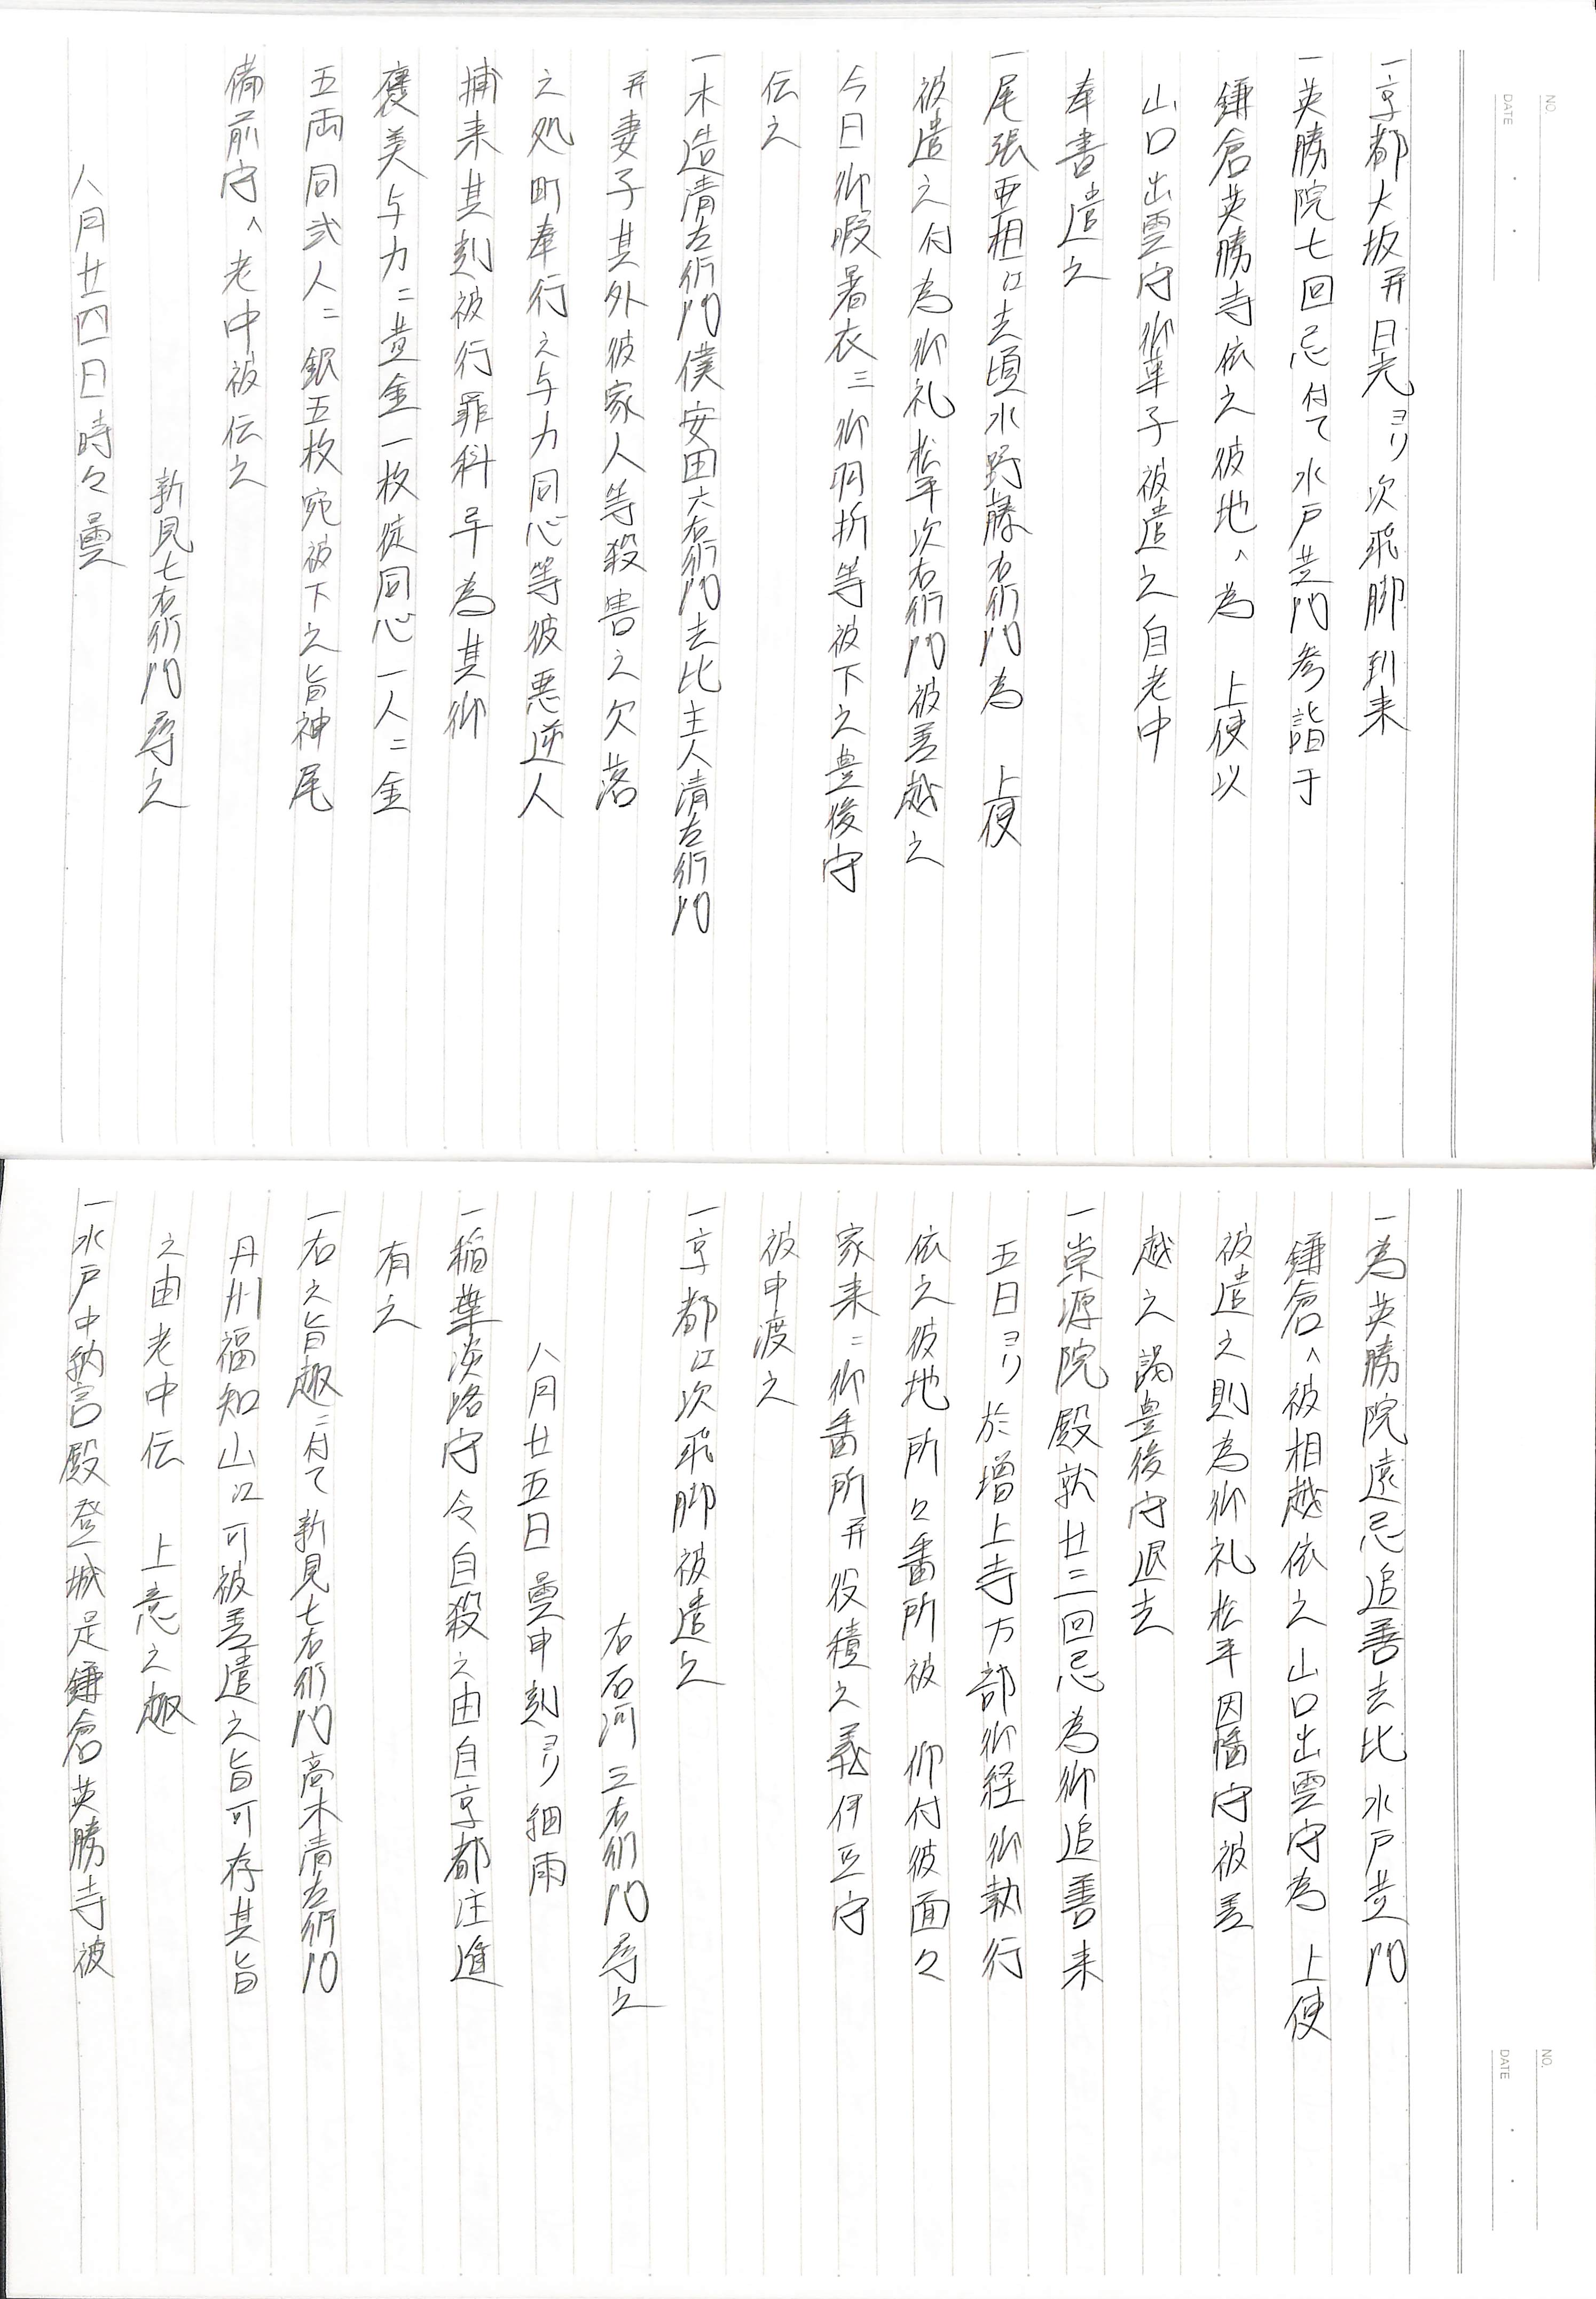 NO.
DATE
一京都大坂并日光ヨリ次飛脚到来
一英勝院七回忌付て水戸黄門参詣于
鎌倉英勝寺依之彼地へ為　上使以
山口出雲守御菓子被遣之自老中
奉書遣之
一尾張亜相江去頃水野藤右衛門為　上使
被遣之付為御礼松平次右衛門被差越之
今日御暇暑衣三御羽折等被下之豊後守
伝之
一木造清左衛門僕安田六右衛門去比主人清左衛門
并妻子其外彼家人等殺害之欠落
之処町奉行之与力同心等彼悪逆人
捕来其刻被行罪科畢為其御
褒美与力ニ黄金一枚徒同心一人ニ金
五両同弐人ニ銀五枚宛被下之旨神尾
備前守へ老中被伝之
新見七右衛門尋之
八月廿四日時々曇
NO.
DATE
一為英勝院遠忌追善去比水戸黄門
鎌倉へ被相越依之山口出雲守為　上使
被遣之則為御礼松平因幡守被差
越之謁豊後守退去
一崇源院殿就廿三回忌為御追善来
五日ヨリ於増上寺万部御経御執行
依之彼地所々番所被　仰付彼面々
家来ニ御番所并役積之義伊豆守
被申渡之
一京都江次飛脚被遣之
右石河三右衛門尋之
八月廿五日曇申刻ヨリ細雨
一稲葉淡路守令自殺之由自京都注進
有之
一右之旨趣ニ付て新見七右衛門高木清左衛門
丹州福知山江可被差遣之旨可存其旨
之由老中伝　上意之趣
一水戸中納言殿登城是鎌倉英勝寺被